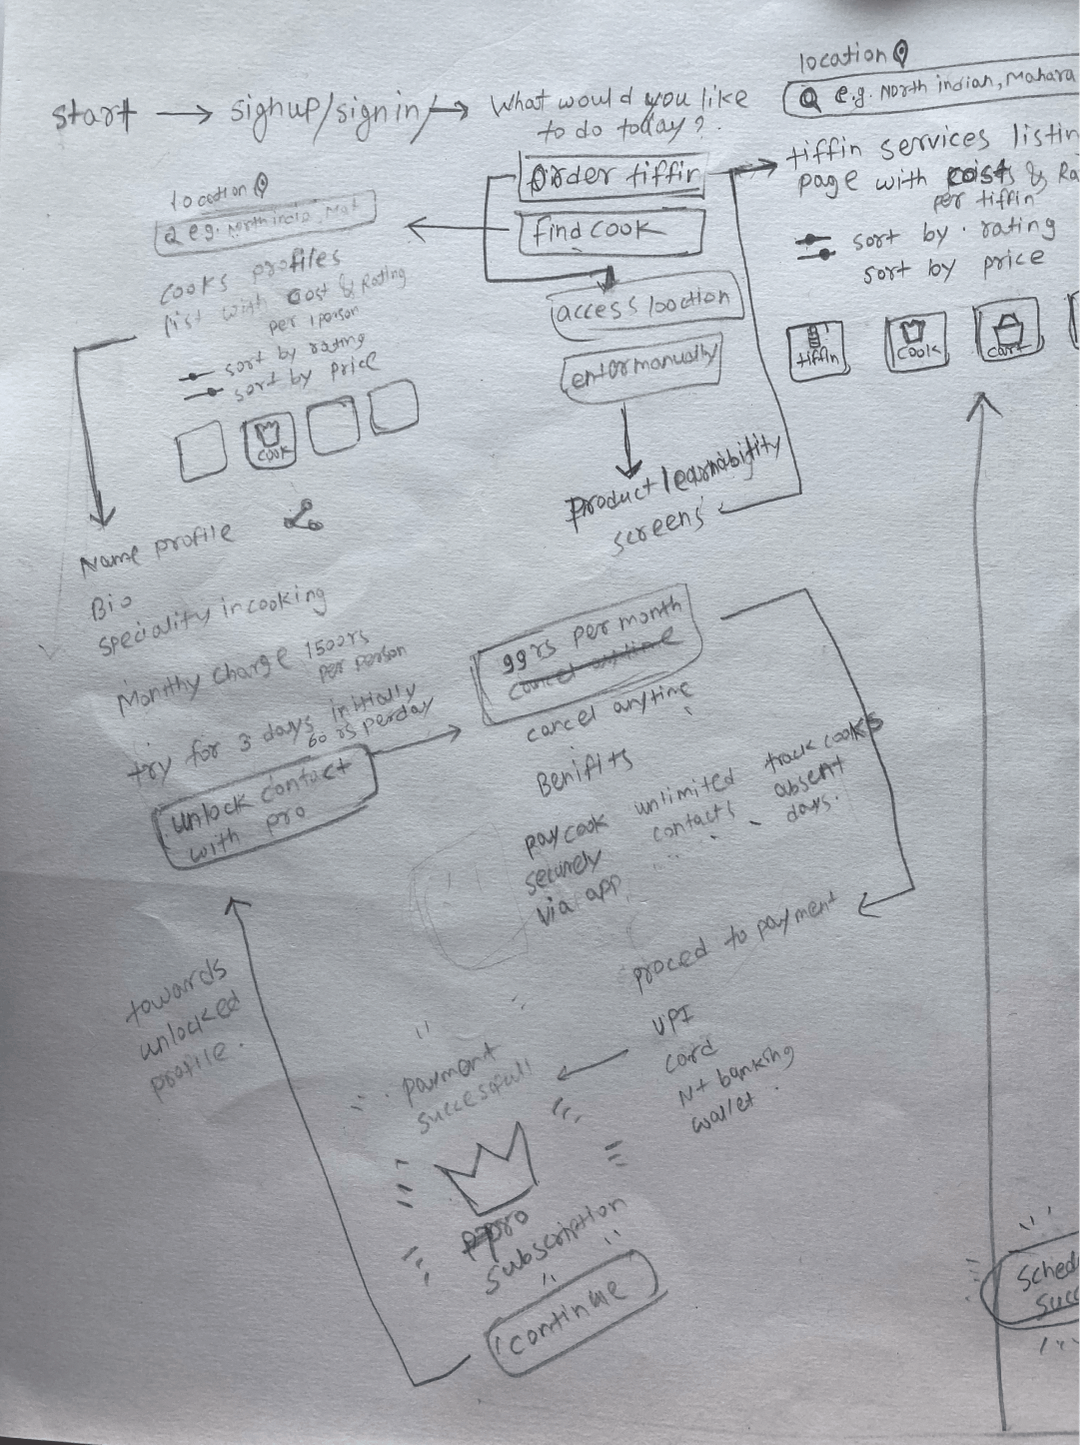 start → signup/signin/→
What would you like
to do today?
order tiffin
find cook
access loaction
enter manually
Product learnability
screens
location
e.g. North indian, Mahara
tiffin services listin
page with costs & Ra
per tiffin
sort by . rating
sort by price
tiffin
cook
cart
location
e.g. North india, Mah
cooks profiles
list with cost & Rating
per 1 person
sort by rating
sort by price
cook
Name profile
Bio
speciality in cooking
Monthy charge 1500rs
per person
try for 3 days initially
60 rs perday
unlock contact
with pro
99 rs per month
cancel anytime
cancel anytime
Benifits
pay cook
securely
via app
unlimited
contacts
track cooks
absent
days.
proced to payment
UPI
card
N+ banking
wallet.
payment
succesful!
pro
subscription
continue
towards
unlocked
profile.
Sched
succ